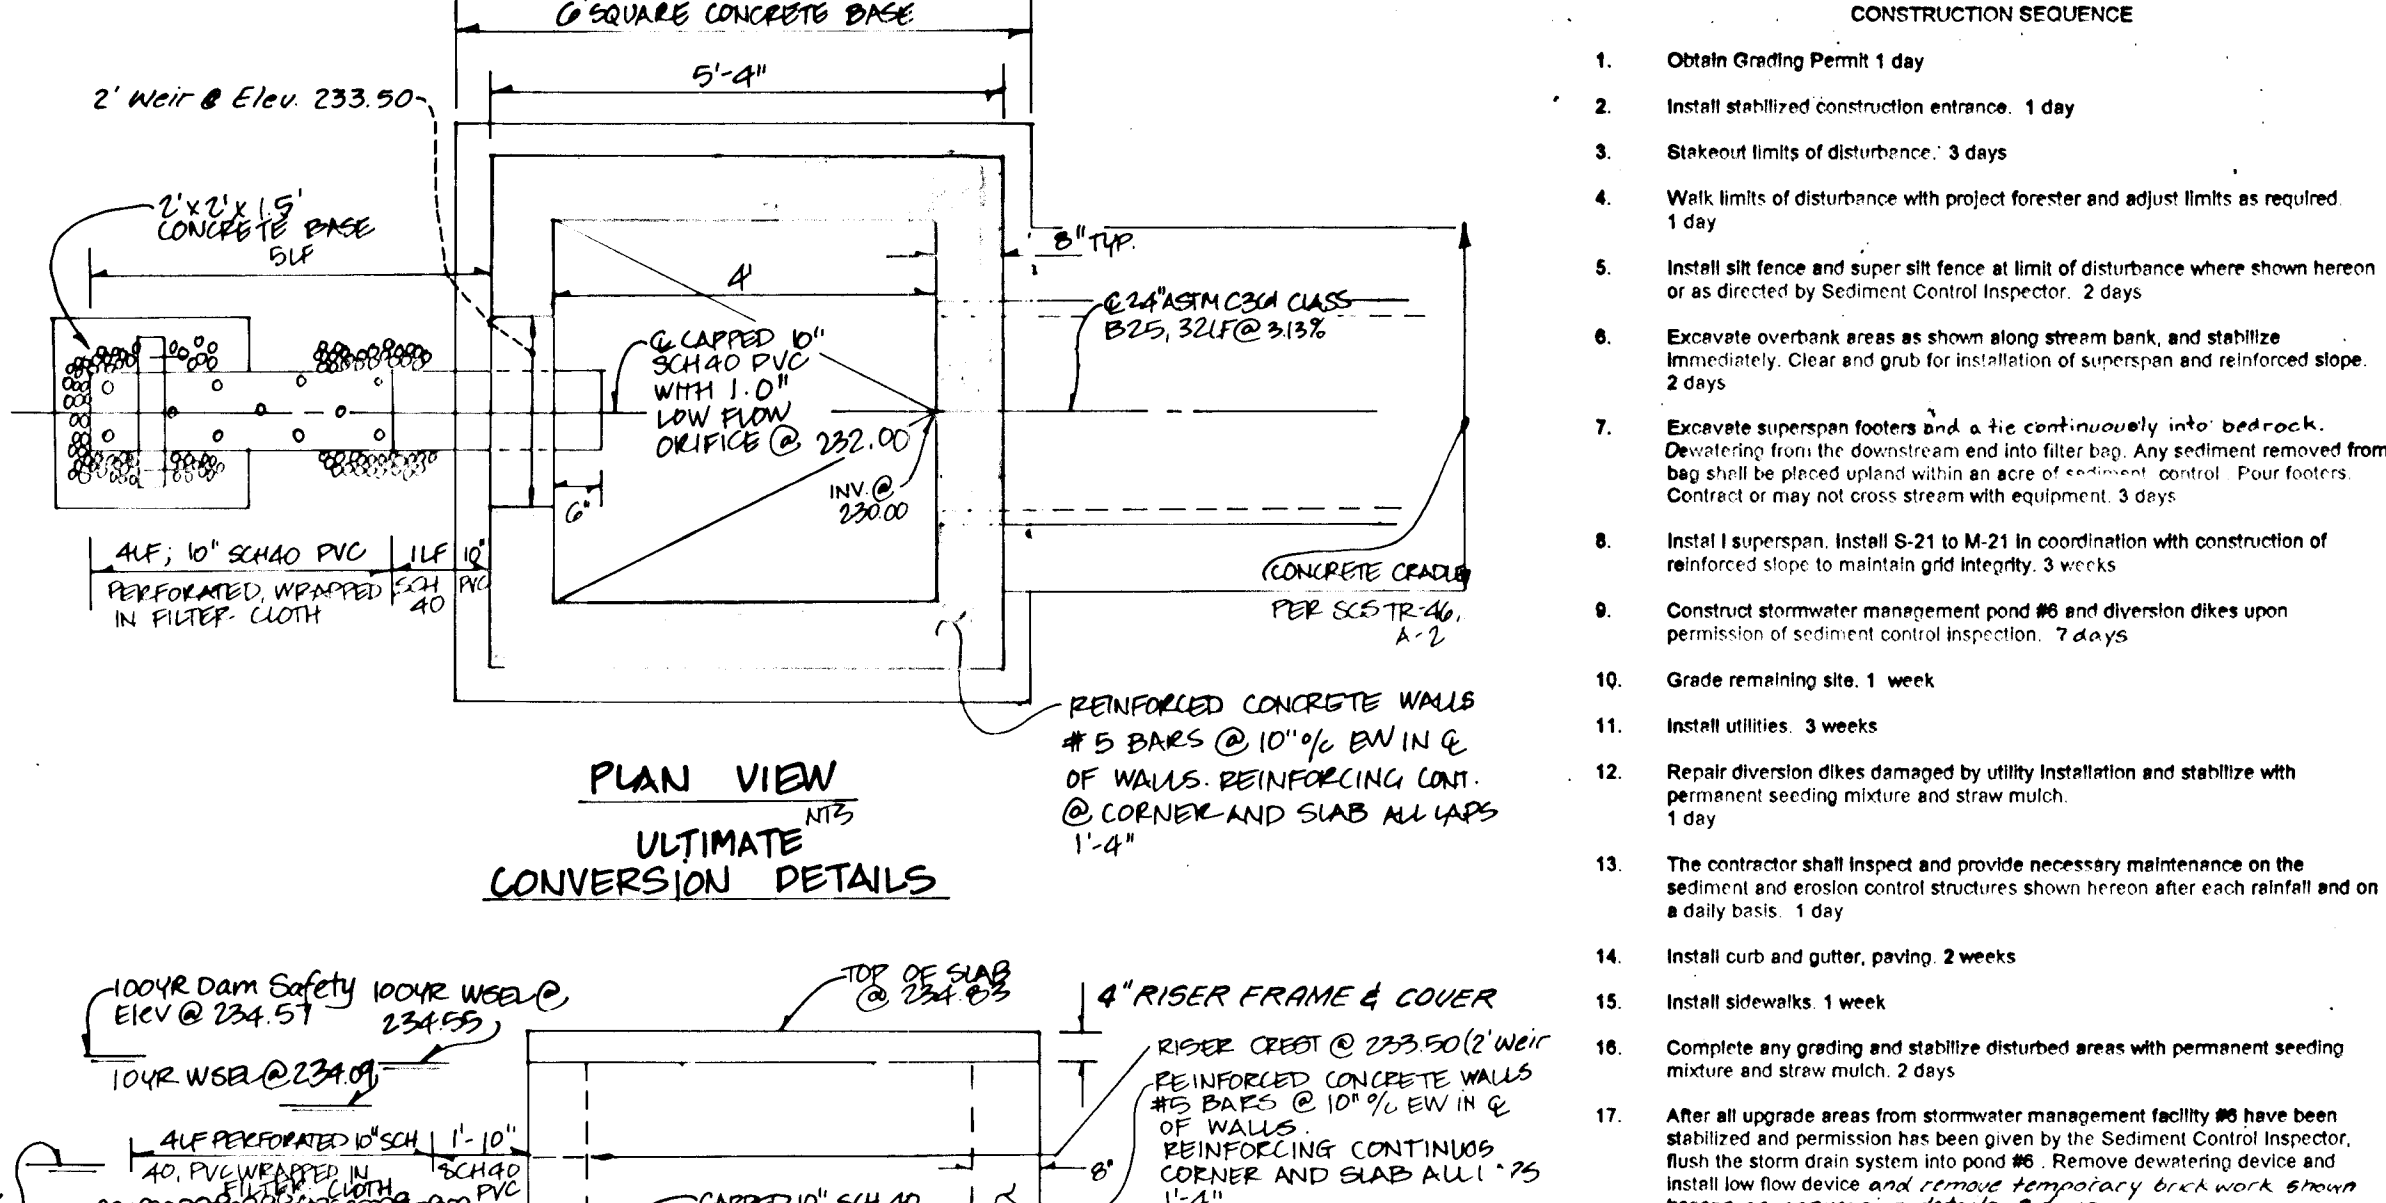 6' SQUARE CONCRETE BASE
5'-4"
2' Weir @ Elev. 233.50
2'x2'x1.5'
CONCRETE BASE
5LF
4'
8" TYP.
℄ CAPPED 10"
SCH40 PVC
WITH 1.0"
LOW FLOW
ORIFICE @ 232.00
℄ 24" ASTM C361 CLASS
B25, 32LF @ 3.13%
INV. @
230.00
6"
4LF; 10" SCH40 PVC
PERFORATED, WRAPPED
IN FILTER CLOTH
1LF 10"
SCH PVC
40
CONCRETE CRADLE
PER SCS TR-46,
A-2
REINFORCED CONCRETE WALLS
#5 BARS @ 10" o/c EW IN ℄
OF WALLS. REINFORCING CONT.
@ CORNER AND SLAB ALL LAPS
1'-4"
PLAN VIEW
NTS
ULTIMATE
CONVERSION DETAILS
100YR Dam Safety
Elev @ 234.57
100YR WSEL @
234.55
10YR WSEL @ 234.09
TOP OF SLAB
@ 234.83
4" RISER FRAME & COVER
RISER CREST @ 233.50 (2' Weir
REINFORCED CONCRETE WALLS
#5 BARS @ 10" o/c EW IN ℄
OF WALLS.
REINFORCING CONTINUOS
CORNER AND SLAB ALL
1'-4"
4LF PERFORATED 10" SCH
40, PVC WRAPPED IN
FILTER CLOTH
1'-10"
SCH40
PVC
8"
CAPPED 10" SCH 40
CONSTRUCTION SEQUENCE
1. Obtain Grading Permit 1 day
2. Install stabilized construction entrance. 1 day
3. Stakeout limits of disturbance. 3 days
4. Walk limits of disturbance with project forester and adjust limits as required.
1 day
5. Install silt fence and super silt fence at limit of disturbance where shown hereon
or as directed by Sediment Control Inspector. 2 days
6. Excavate overbank areas as shown along stream bank, and stabilize
immediately. Clear and grub for installation of superspan and reinforced slope.
2 days
7. Excavate superspan footers and a tie continuously into bedrock.
Dewatering from the downstream end into filter bag. Any sediment removed from
bag shall be placed upland within an acre of sediment control. Pour footers.
Contract or may not cross stream with equipment. 3 days
8. Instal l superspan. Install S-21 to M-21 in coordination with construction of
reinforced slope to maintain grid integrity. 3 weeks
9. Construct stormwater management pond #6 and diversion dikes upon
permission of sediment control inspection. 7 days
10. Grade remaining site. 1 week
11. Install utilities. 3 weeks
12. Repair diversion dikes damaged by utility installation and stabilize with
permanent seeding mixture and straw mulch.
1 day
13. The contractor shall inspect and provide necessary maintenance on the
sediment and erosion control structures shown hereon after each rainfall and on
a daily basis. 1 day
14. Install curb and gutter, paving. 2 weeks
15. Install sidewalks. 1 week
16. Complete any grading and stabilize disturbed areas with permanent seeding
mixture and straw mulch. 2 days
17. After all upgrade areas from stormwater management facility #6 have been
stabilized and permission has been given by the Sediment Control Inspector,
flush the storm drain system into pond #6. Remove dewatering device and
install low flow device and remove temporary brick work shown